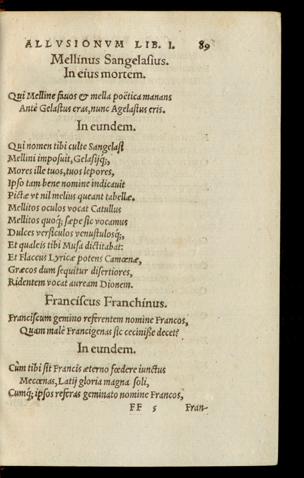 ALLVSIONVM LIB. I. 89
Mellinus Sangelasius.
In eius mortem.
Qui Melline fauos & mella poëtica manans
Antè Gelastus eras, nunc Agelastus eris.
In eundem.
Qui nomen tibi culte Sangelasî
Mellini imposuit, Gelasijq́;,
Mores ille tuos, tuos lepores,
Ipso tam bene nomine indicauit
Pictæ vt nil melius queant tabellæ.
Mellitos oculos vocat Catullus
Mellitos quoq́; sæpe sic vocamus
Dulces versiculos venustulosq́;,
Et qualeis tibi Musa dictitabat:
Et Flaccus Lyricæ potens Camœnæ,
Græcos dum sequitur disertiores,
Ridentem vocat auream Dionem.
Franciscus Franchinus.
Franciscum gemino referentem nomine Francos,
Quam malè Francigenas sic cecinisse decet?
In eundem.
Cùm tibi sit Francis æterno fœdere iunctus
Mecœnas, Latij gloria magna soli,
Cumq́; ipsos referas geminato nomine Francos,
FF 5 Fran-